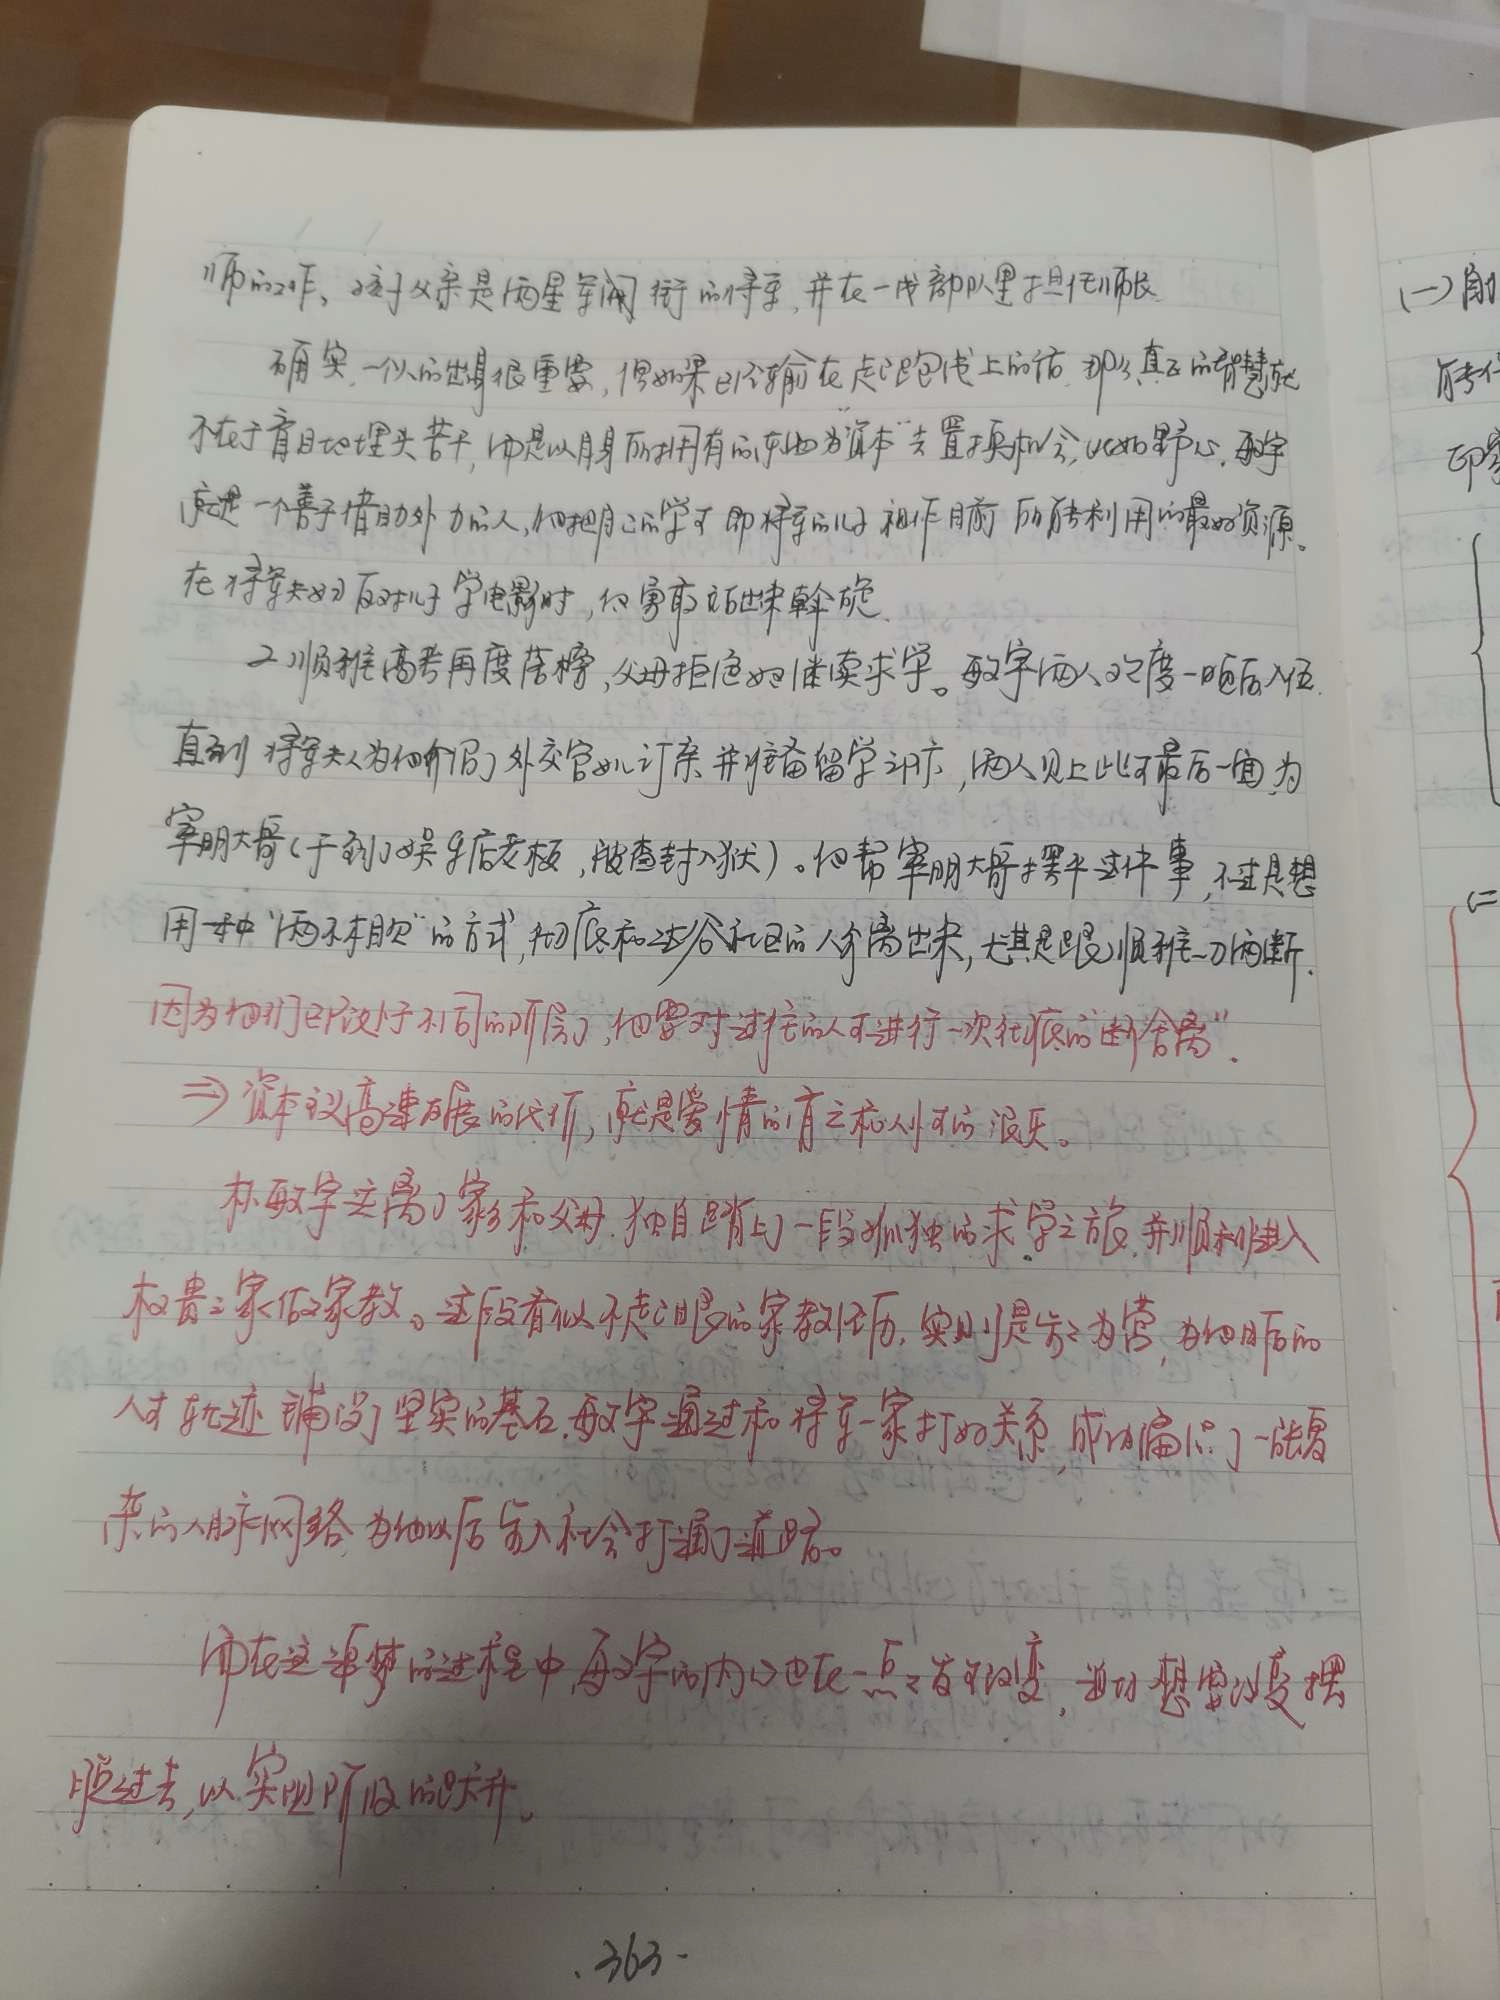 师的工作，孩子父亲是两星军阀衔的将军，并在一线部队里担任师长
确实，一个人的出身很重要，但如果已经输在起跑线上的话，那么真正的智慧就
不在于盲目地埋头苦干，而是以自身所拥有的东西为“资本”去置换机会，比如野心，敏宇
就是一个善于借助外力的人，他把自己的学生即将军的儿子视作目前所能利用的最好资源。
在将军夫妇反对儿子学电影时，他勇敢站出来斡旋
又顺雅高考再度落榜，父母拒绝她继续求学。敏宇两人欢度一晚后入伍，
直到将军夫人为他介绍了外交官女儿订亲并准备留学之际，两人见上此生最后一面，为
宰明大哥（于到了娱乐店老板，被查封入狱）。他帮宰明大哥摆平这件事，不过是想
用一种“两不相欠”的方式，彻底和达谷社区的人分离出来，尤其是跟顺雅一刀两断，
因为他们已经处于不同的阶层了，他要对过往的人生进行一次彻底的“断舍离”。
⇒ 资本主义高速发展的代价，就是爱情的有之和人性的泯灭。
朴敏宇远离了家乡和父母，独自踏上了一段孤独的求学之旅，并顺利进入
权贵之家做家教。这段看似不起眼的家教经历，实则是步步为营，为他日后的
人生轨迹铺设了坚实的基石，敏宇通过和将军一家打好关系，成功编织了一张复
杂的人脉网络，为他以后步入社会打通了道路。
而在这追梦的过程中，敏宇的内心也在一点点发生改变，迫切想要改变摆
脱过去，以实现阶级的跃升。
·363·
（一）
印象
（二